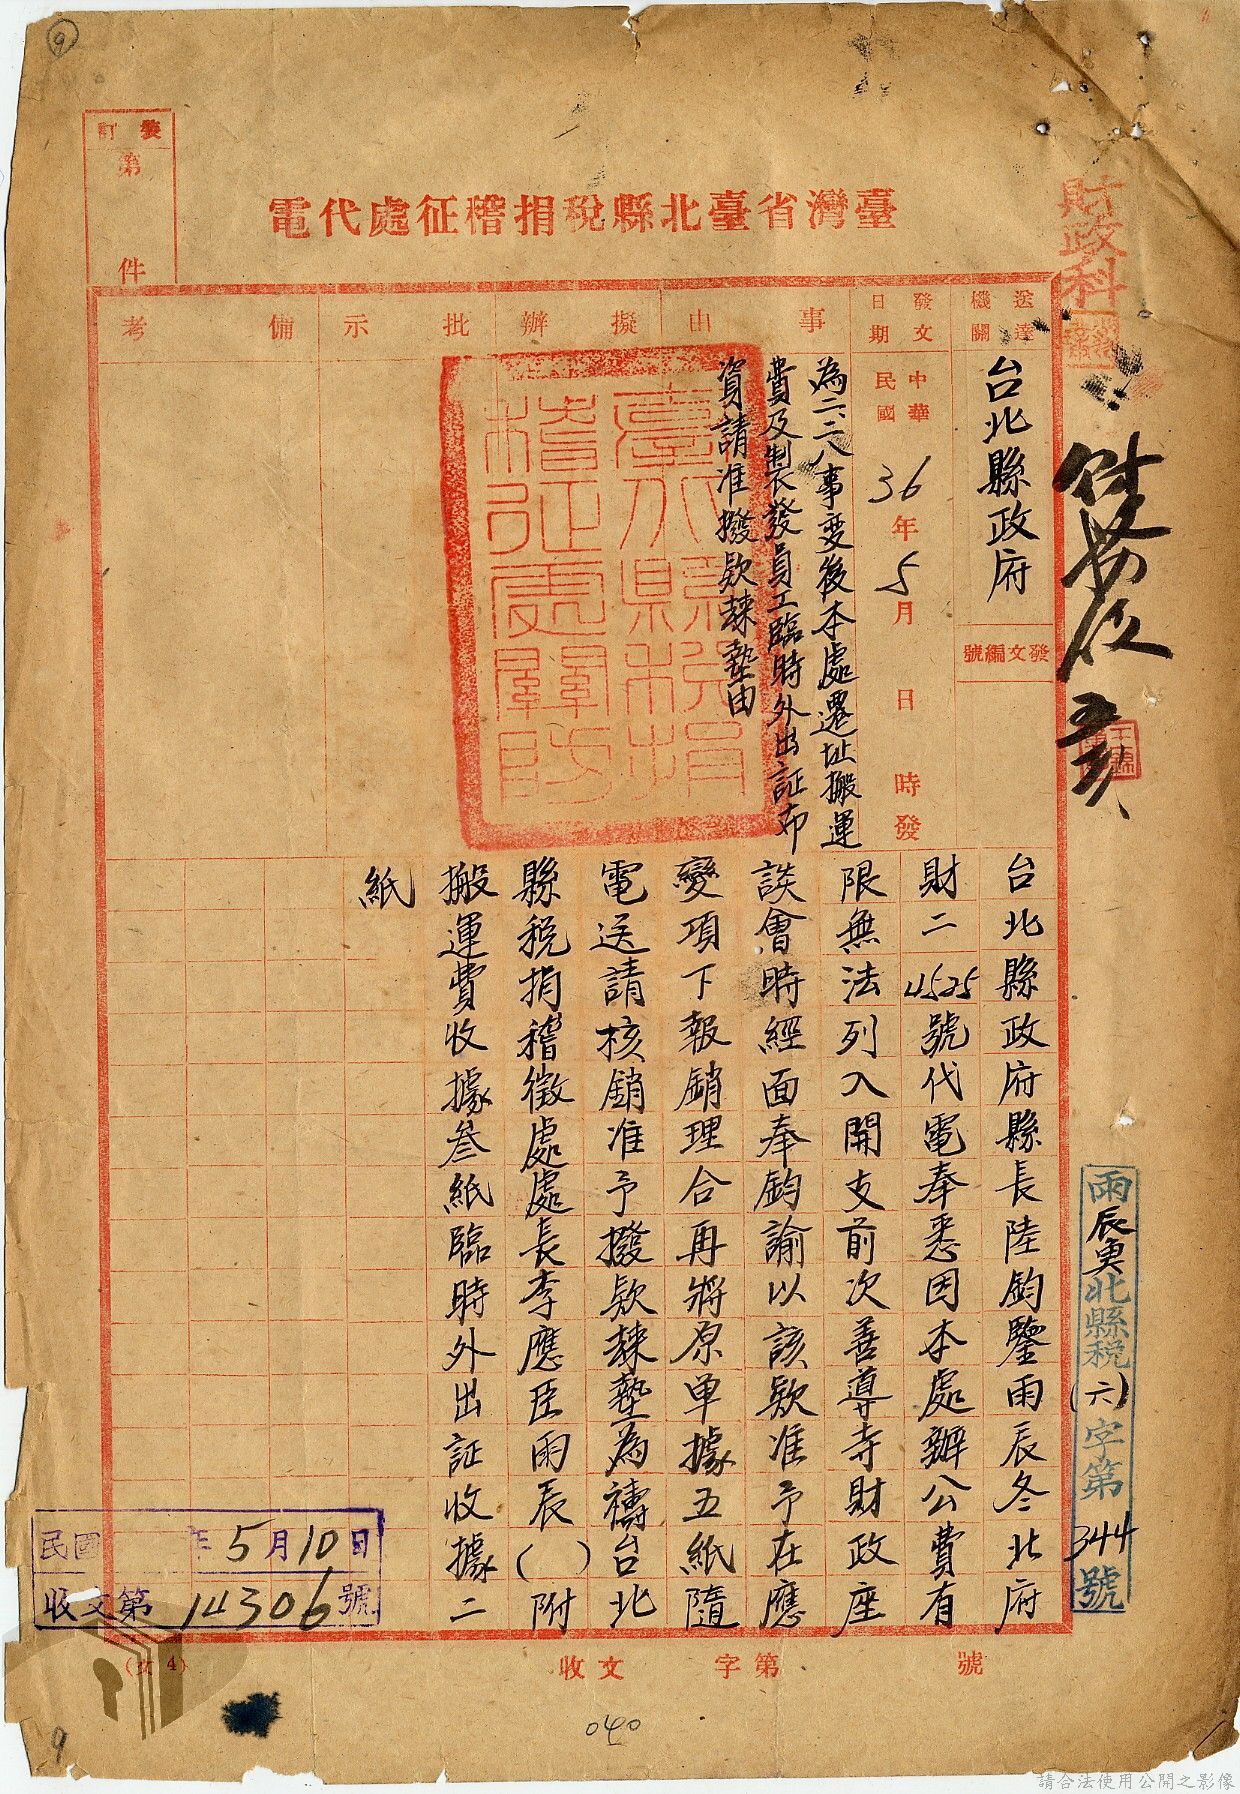 9
裝訂
第
件
臺灣省臺北縣稅捐稽征處代電
財政科
送達機關
台北縣政府
發文編號
發文日期
中華民國36年5月 日 時發
事由
為二、二八事变後本處遷址搬運
費及製發員工臨時外出証布
資請准撥欵歸墊由
擬辦
批示
備考
臺北縣稅捐
稽征處關防
台北縣政府縣長陸鈞鑒雨辰冬北府
財二4525號代電奉悉因本處辦公費有
限無法列入開支前次善導寺財政座
談會時經面奉鈞諭以該欵准予在應
變項下報銷理合再將原单據五紙隨
電送請核銷准予撥欵歸墊為禱台北
縣稅捐稽徵處處長李應臣雨辰( )附
搬運費收據叁紙臨時外出証收據二
紙
雨辰寅北縣稅(六)字第344號
民國 年5月10日
收文第14306號
收文 字第 號
(文4)
040
9
請合法使用公開之影像